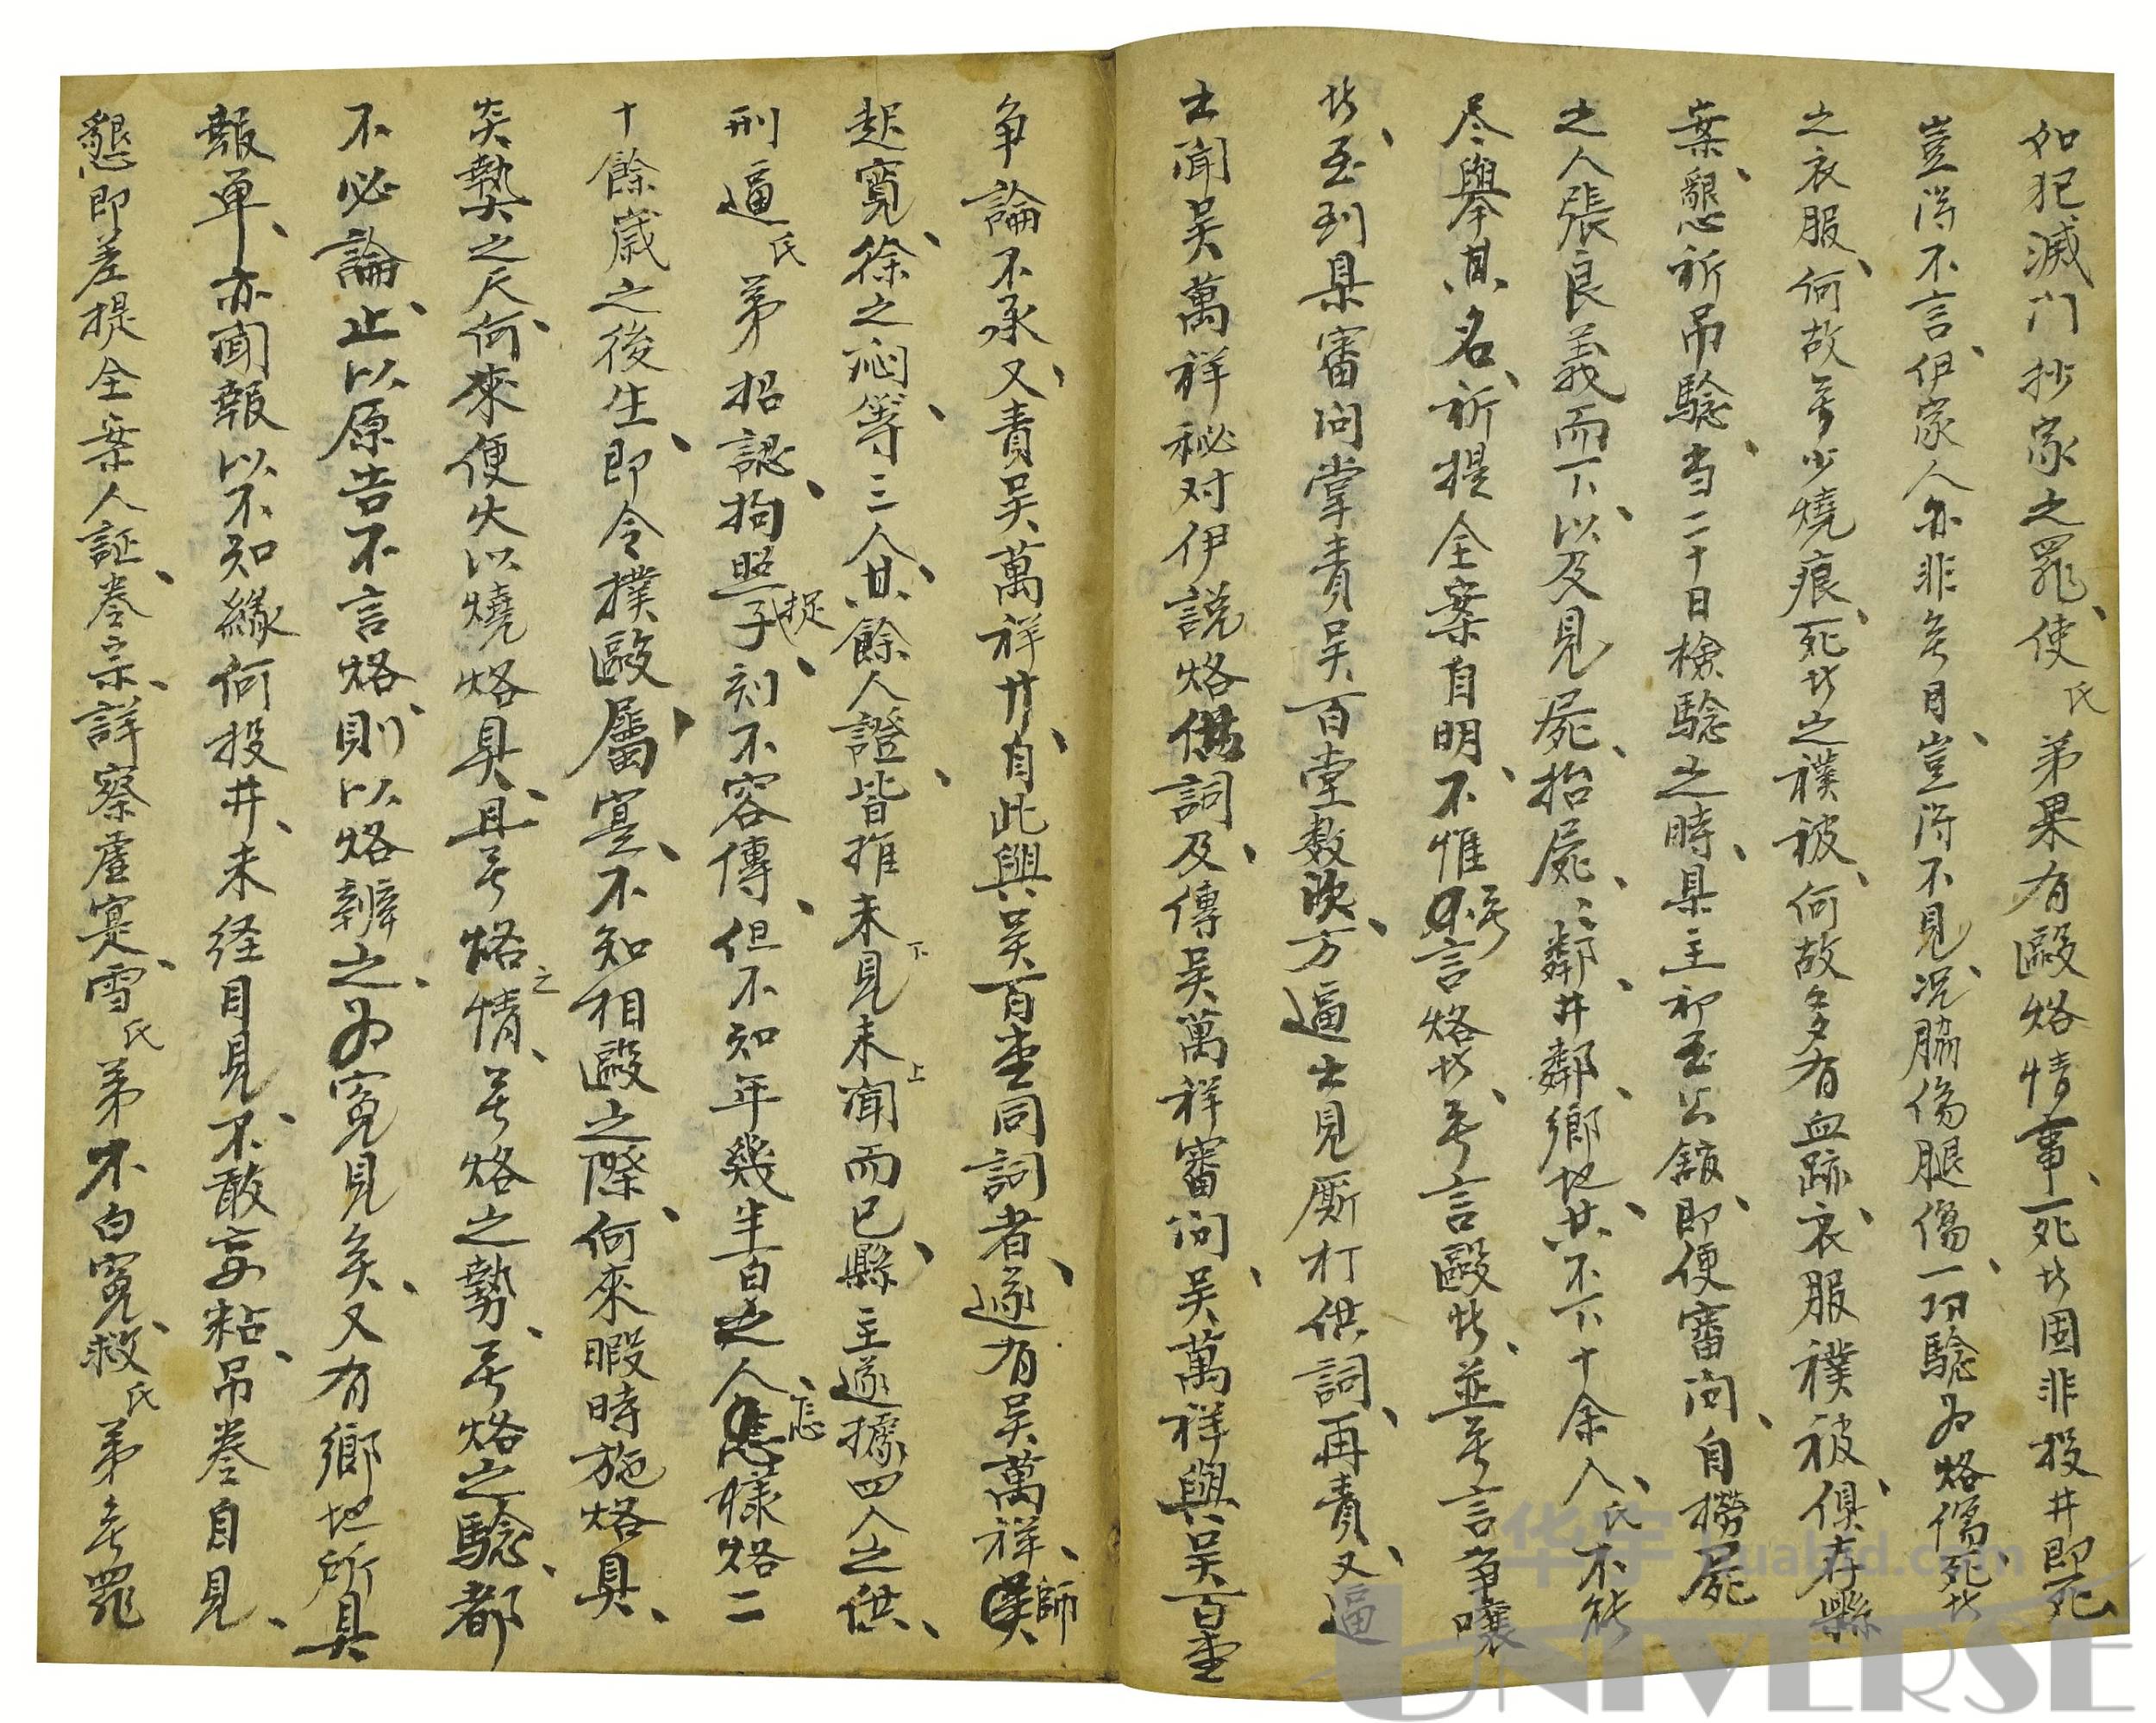 如犯滅門抄家之罪、使氏弟果有毆烙情事、死者固非投井即死、
豈得不言、伊家人亦非無目、豈得不見、況脇傷腿傷、一切驗為烙傷、死者
之衣服、何故無少燒痕、死者之襆被、何故多有血跡、衣服襆被、俱存縣
案、懇祈吊驗、当二十日檢驗之時、県主初至公館、即便審问、自撈屍
之人張良義而下、以及見屍、抬屍、鄰井鄰鄉地、共不下十余人、氏不能
尽舉其名、祈提全案自明、不惟無言烙者、無言毆者、並無言爭嚷
者、至到県審问掌責吴百堂数次、方逼出見厮打供詞、再責、又逼
出闻吴萬祥秘对伊説烙供詞、及傳吴萬祥審问、吴萬祥與吴百堂
争論不承、又責吴萬祥廾、自此與吴百堂同詞者、遂有吴萬祥、師
起寬、徐之润等、三人、其餘人證皆推未見未闻而已、縣主遂據四人之供、
刑逼氏弟招認、拘照捉子、刻不容傳、但不知年幾半百之人、怎樣烙二
十餘歲之後生、即令撲毆屬寔、不知相毆之際、何來暇時施烙具、
炎熱之天、何來便火以燒烙具、且無烙之情、無烙之勢、無烙之驗、都
不必論、止以原告不言烙、則以烙辨之、為寃見矣、又有鄉地所具
報单、亦闻報以不知緣何投井、未経目見、不敢妄粘、吊卷自見、
懇即差提全案人証、卷宗、詳察虛寔、雪氏弟不白寃、救氏弟無罪
华宇
huabid.com
UNIVERSE